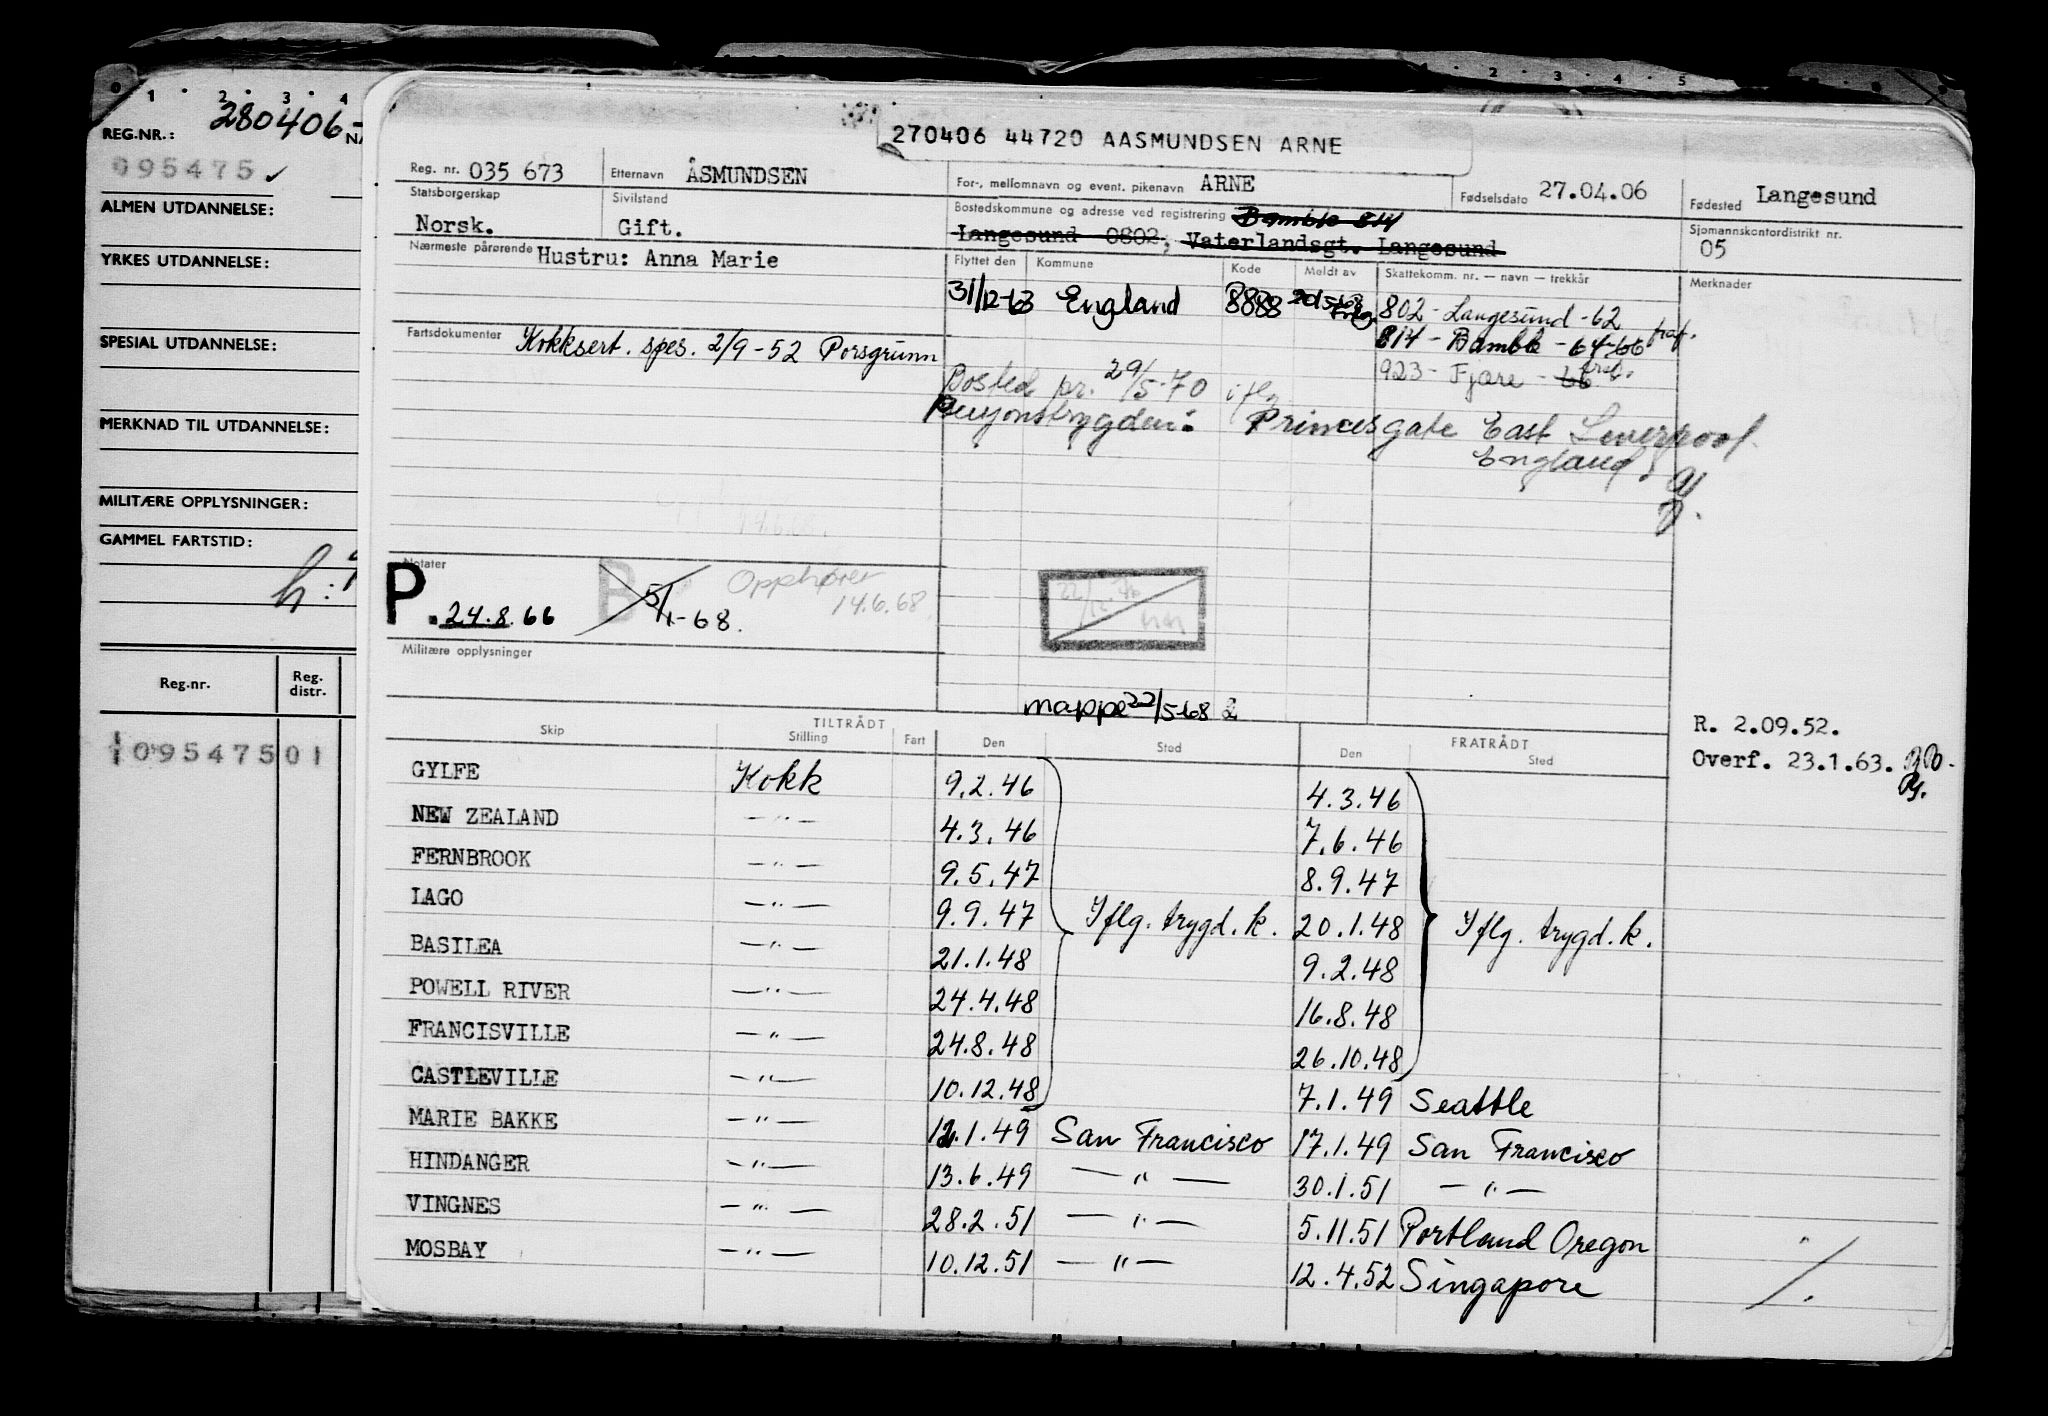 0 1 · 2 · 3 · 4
1 · 2 · 3 · 4 · 5
REG.NR.: 280406-
095475 ✓
ALMEN UTDANNELSE:
YRKES UTDANNELSE:
SPESIAL UTDANNELSE:
MERKNAD TIL UTDANNELSE:
MILITÆRE OPPLYSNINGER:
GAMMEL FARTSTID:
h:
Reg.nr. Reg. distr.
095475 01
270406 44720 AASMUNDSEN ARNE
Reg. nr. 035 673 Etternavn ÅSMUNDSEN For-, mellomnavn og event. pikenavn ARNE Fødselsdato 27.04.06 Fødested Langesund
Statsborgerskap Sivilstand Bostedskommune og adresse ved registrering Bamble 814
Norsk. Gift. Langesund 0802, Vaterlandsgt. Langesund Sjømannskontordistrikt nr. 05
Nærmeste pårørende Hustru: Anna Marie Flyttet den Kommune Kode Meldt av Skattekomm. nr. — navn — trekkår Merknader
31/12-63 England 8888 802 - Langesund - 62
Fartsdokumenter Kokksert. spes. 2/9-52 Porsgrunn 814 - Bamble - 64-66 fraf.
923 - Fjære - 66
Bosted pr. 29/5-70 iflg
Pensjonstrygden: Princes gate East Liverpool
England
Notater
P. 24.8.66 B 5/1-68. Opphører 14.6.68
Militære opplysninger
mappe 22/5-68
R. 2.09.52.
Overf. 23.1.63.
TILTRÅDT FRATRÅDT
Skip Stilling Fart Den Sted Den Sted
GYLFE Kokk 9.2.46 4.3.46
NEW ZEALAND —"— 4.3.46 7.6.46
FERNBROOK —"— 9.5.47 8.9.47
IAGO —"— 9.9.47 Iflg. trygd.k. 20.1.48 Iflg. trygd.k.
BASILEA —"— 21.1.48 9.2.48
POWELL RIVER —"— 24.4.48 16.8.48
FRANCISVILLE —"— 24.8.48 26.10.48
CASTLEVILLE —"— 10.12.48 7.1.49 Seattle
MARIE BAKKE —"— 12.1.49 San Francisco 17.1.49 San Francisco
HINDANGER —"— 13.6.49 —"— 30.1.51 —"—
VINGNES —"— 28.2.51 —"— 5.11.51 Portland Oregon
MOSBAY —"— 10.12.51 —"— 12.4.52 Singapore